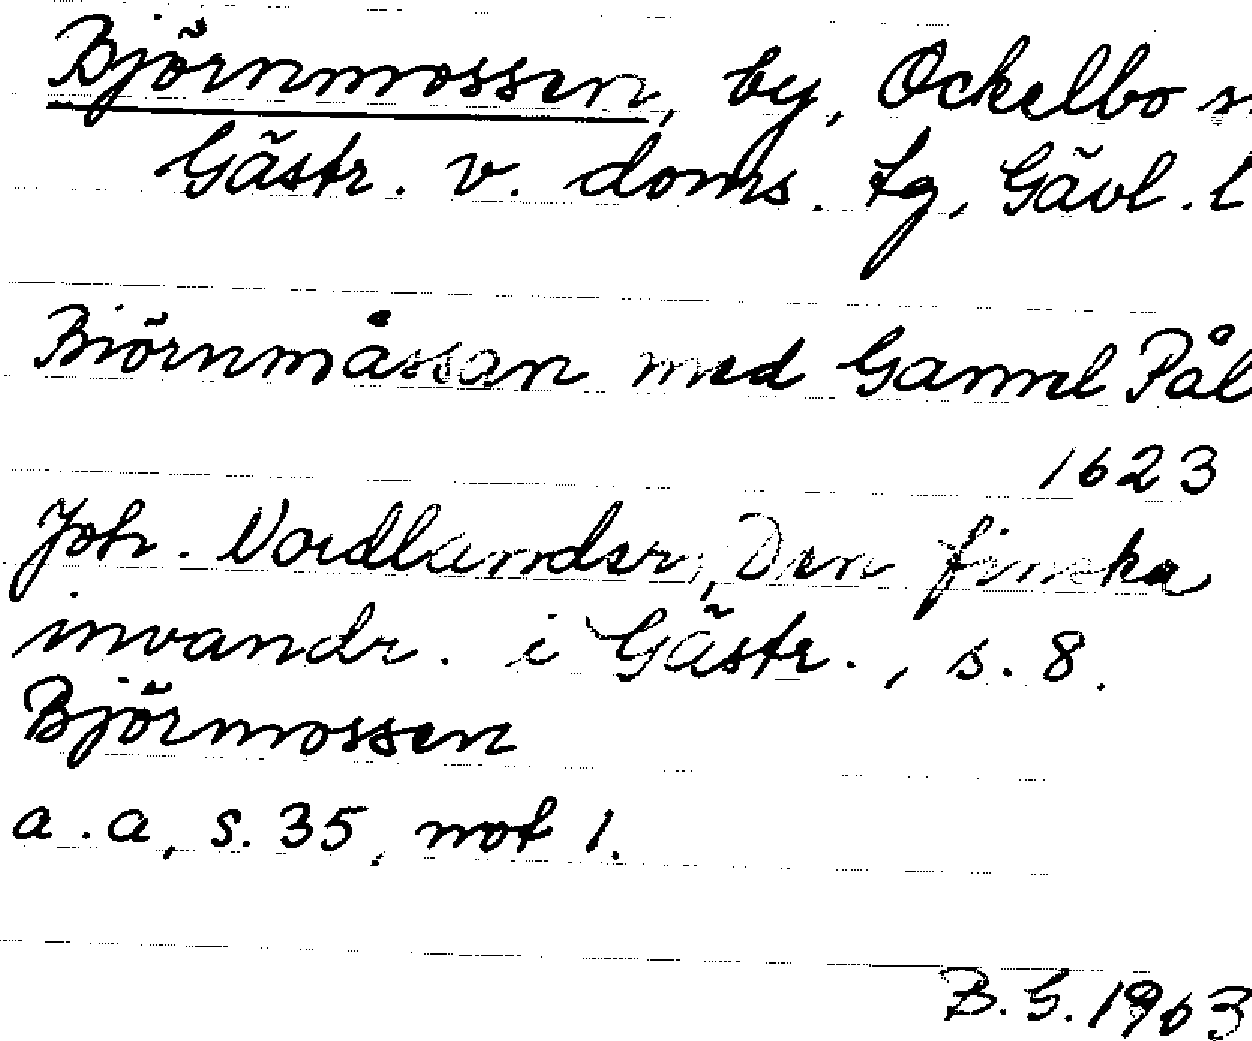 Björnmossen, by, Ockelbo s
Gästr. v. doms. tg, Gävl. l
Biörnmåssan med Gamel Pål
1623
Joh. Nordlander, Den finska
invandr. i Gästr., s. 8.
Björmossen
a.a, s. 35, not 1.
B.G. 1963